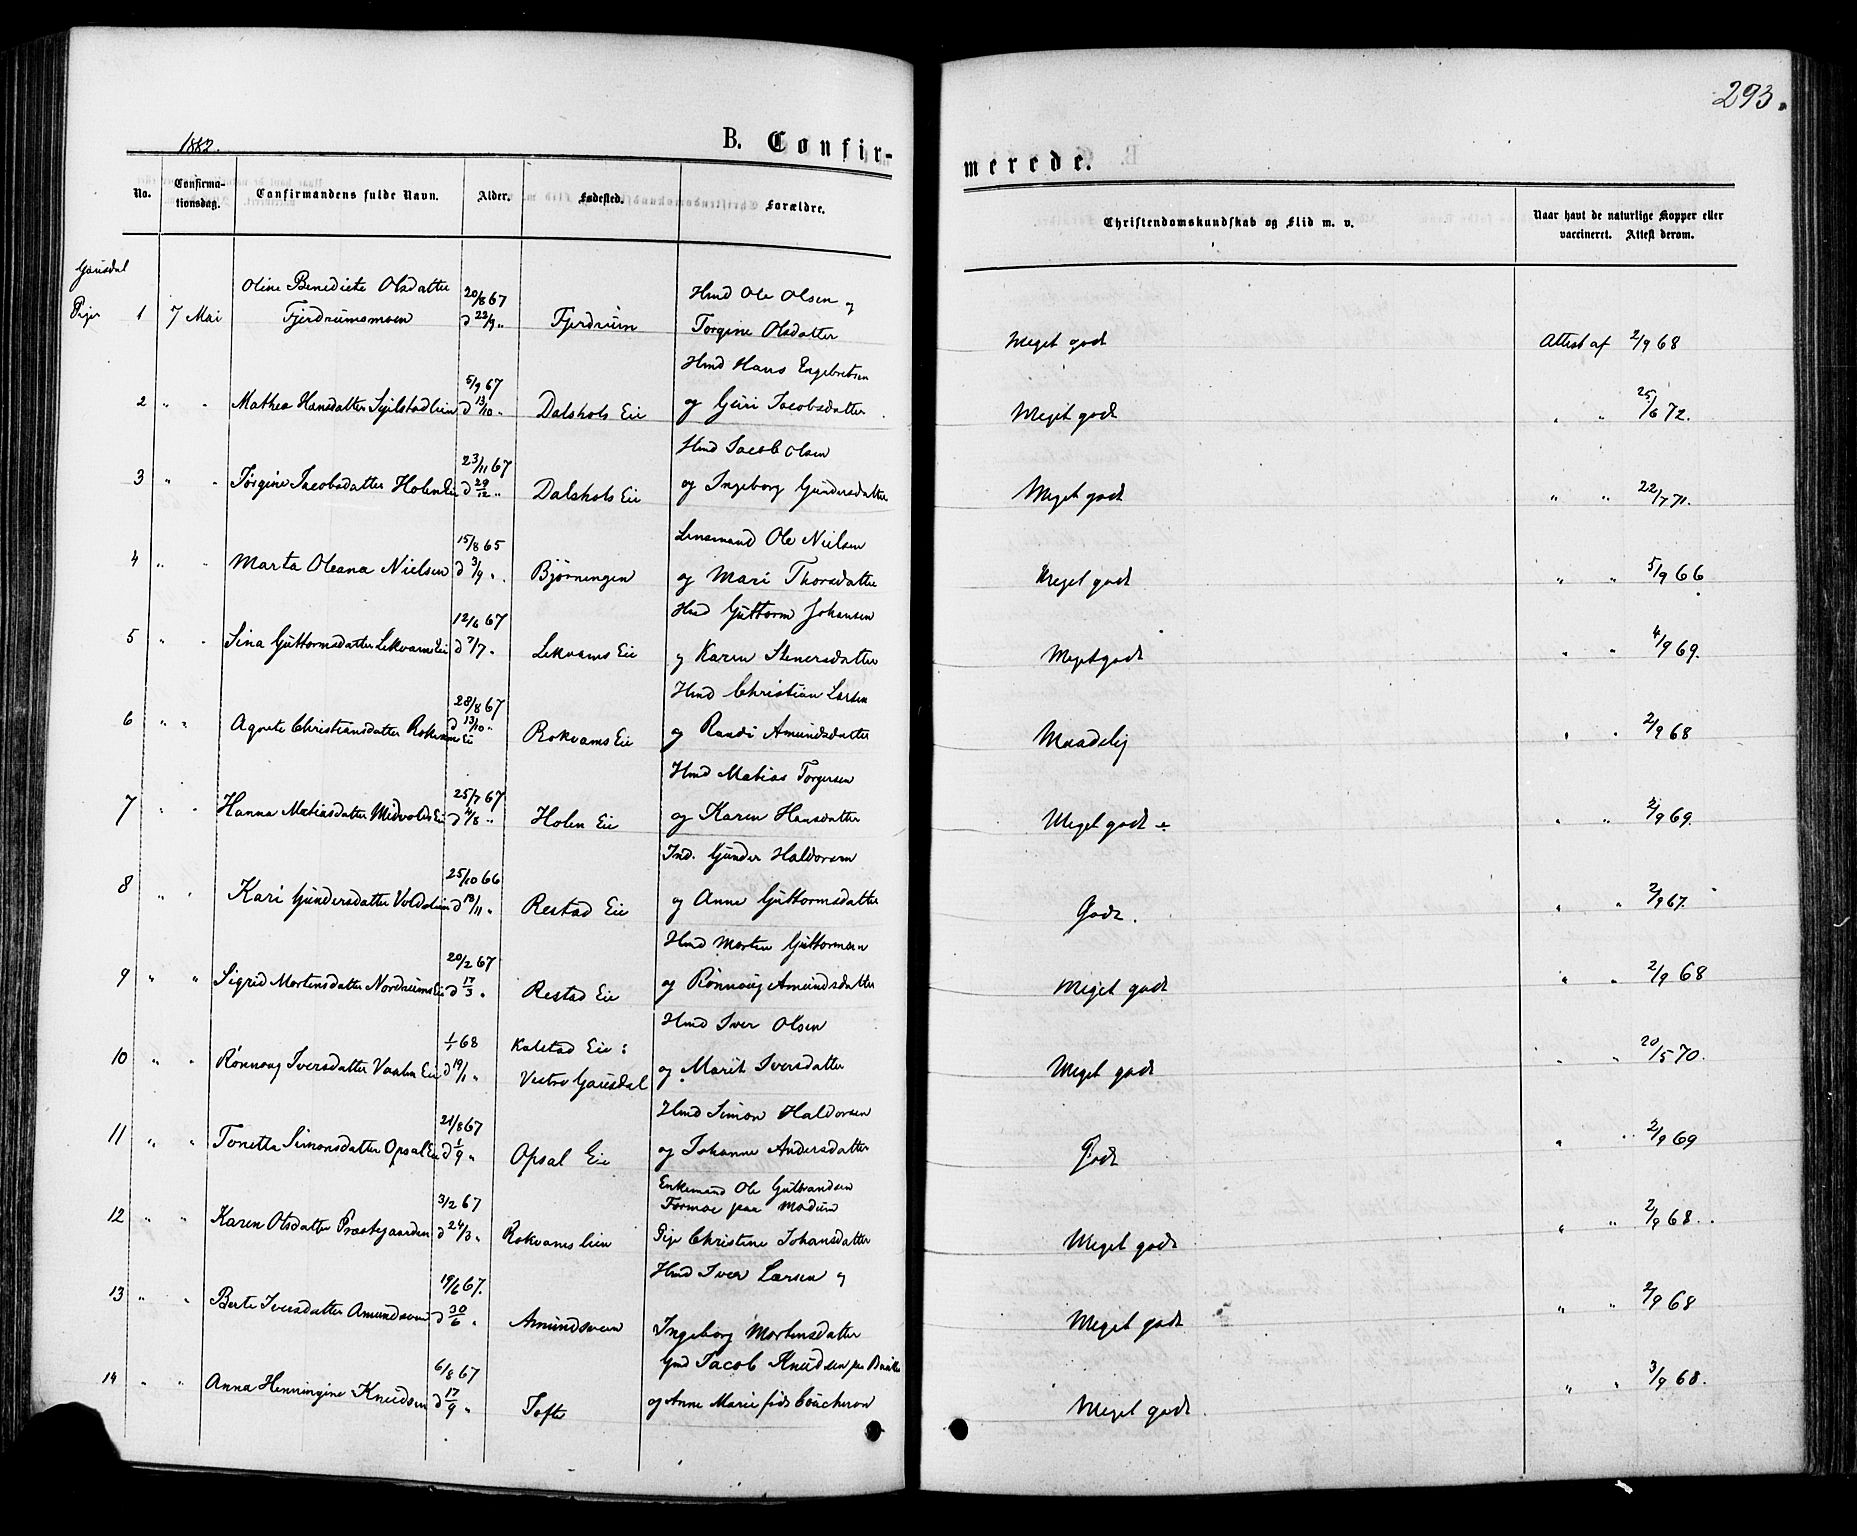 293.
1882.
B. Confir-
merede.
No.
Confirma-
tionsdag.
Confirmandens fulde Navn.
Alder.
Fødested.
Forældre.
Christendomskundskab og Flid m. v.
Naar havt de naturlige Kopper eller
vaccineret. Attest derom.
Gausdal
Piger 1 7 Mai
Oline Benedicte Olsdatter
Fjerdrumsmoen
20/8 67
d 22/9 "
Fjerdrum
Hmd Ole Olsen og
Torgine Olsdatter
Meget godt
Attest af 2/9 68
2 " "
Mathea Hansdatter
5/9 67
d 13/10 "
Dalshols Eie
Hmd Hans Engebretsen
og Guri Jacobsdatter
Meget godt
" " 25/6 72.
3 " "
Torgine Jacobsdatter Holen Eie
23/11 67
d 29/12 "
Dalshols Eie
Hmd Jacob Olsen
og Ingeborg Gundersdatter
Meget godt
" " 22/7 71.
4 " "
Marta Oleana Nielsen
15/8 65
d 3/9 "
Bjørningen
Lensmand Ole Nielsen
og Mari Thorsdatter
Meget godt
" " 5/9 66
5 " "
Sina Guttormsdatter Lekvams Eie
12/6 67
d 7/7 "
Lekvams Eie
Hmd Guttorm Johansen
og Karen Stenersdatter
Meget godt
" " 4/9 69.
6 " "
Agnete Christiansdatter Rokvam Eie
28/8 67
d 13/10 "
Rokvams Eie
Hmd Christian Larsen
og Randi Amundsdatter
Maadelig
" " 2/9 68
7 " "
Hanna Matiasdatter Midvolds Eie
25/7 67
d 4/8 "
Holen Eie
Hmd Matias Torgersen
og Karen Hansdatter
Meget godt ÷
" " 2/9 69.
8 " "
Kari Gundersdatter Voldslien
25/10 66
d 18/11 "
Restad Eie
Ind. Gunder Haldorsen
og Anne Guttormsdatter
Godt.
" " 2/9 67.
9 " "
Sigrid Mortensdatter Nordrums Eie
20/2 67
d 17/3 "
Restad Eie
Hmd Morten Guttormsen
og Rønnoug Amundsdatter
Meget godt
" " 2/9 68
10 " "
Rønnoug Iversdatter Vaalen Eie
1/1 68
d 19/1 "
Kalstad Eie i
Vestre Gausdal
Hmd Iver Olsen
og Marit Iversdatter
Meget godt
" " 20/5 70.
11 " "
Tonetta Simonsdatter Opsal Eie
21/8 67
d 1/9 "
Opsal Eie
Hmd Simon Haldorsen
og Johanne Andersdatter
Godt
" " 2/9 69
12 " "
Karen Olsdatter Præstegaarden
3/2 67
d 24/3 "
Rokvamslien
Enkemand Ole Gulbrandsen
Formoe paa Modum
Pige Christine Johansdatter
Meget godt
" " 2/9 68.
13 " "
Berte Iversdatter Amundsveen
19/6 67.
d 30/6 "
Amundsveen
Hmd Iver Larsen og
Ingeborg Mortensdatter
Meget godt
" " 2/9 68
14 " "
Anna Henningine Knudsen
6/8 67
d 17/9 "
Tofte
Gmd Jacob Knudsen paa
og Anne Marie født Coucheron
Meget godt.
" " 3/9 68.